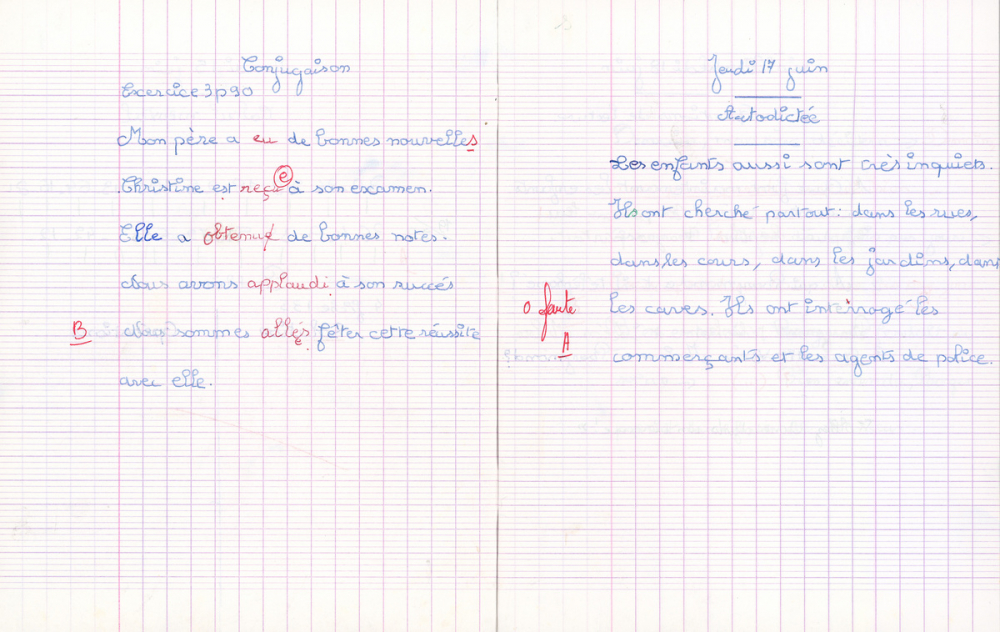 Conjugaison
Exercice 3 p 90
Mon père a eu de bonnes nouvelles
Christine est reçue à son examen.
Elle a obtenu de bonnes notes.
Nous avons applaudi à son succés
B Nous sommes allés fêter cette réussite
avec elle.
Jeudi 17 juin
Autodictée
Les enfants aussi sont très inquiets.
Ils ont cherché partout : dans les rues,
dans les cours, dans les jardins, dans
0 faute les caves. Ils ont interrogé les
A commerçants et les agents de police.